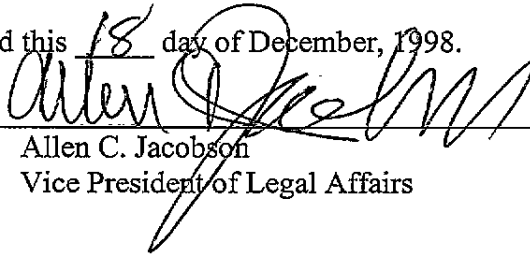 d this 18 day of December, 1998.
Allen Jacobson
Allen C. Jacobson
Vice President of Legal Affairs